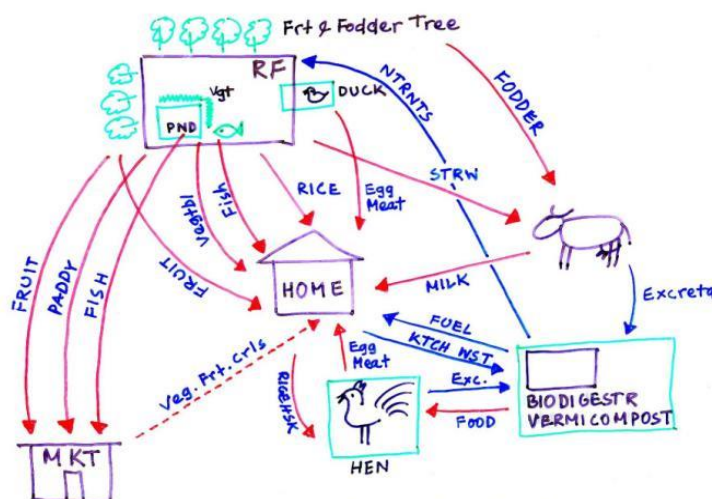 Frt & Fodder Tree
RF
Vgt
PND
DUCK
NTRNTS
FODDER
STRW
RICE
Egg
Meat
Fish
Vegtbl
FRUIT
FRUIT
PADDY
FISH
HOME
MILK
Excreta
FUEL
KTCH WST
Veg. Frt. Crls
Egg
Meat
RICEHSK
Exc.
FOOD
BIODIGESTR
VERMICOMPOST
MKT
HEN